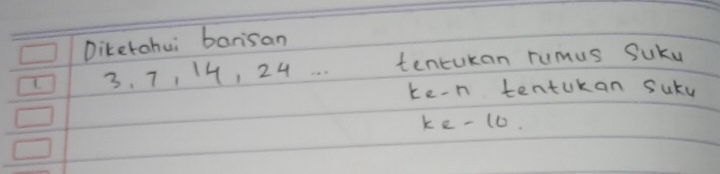 Diketahui barisan
1. 3, 7, 14, 24 ... tentukan rumus suku
ke-n tentukan suku
ke-10.